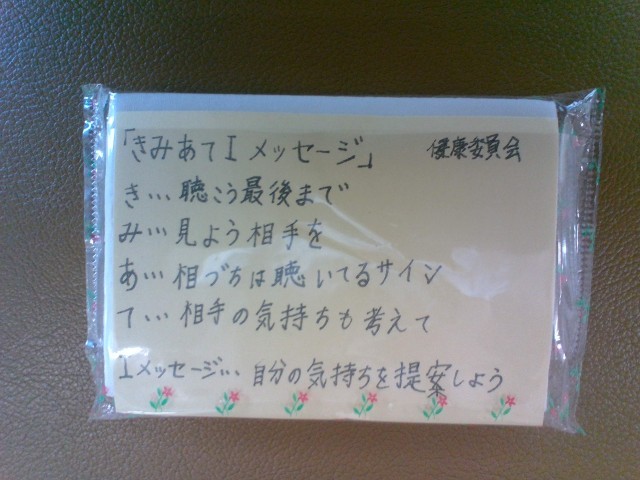 「きみあてIメッセージ」 健康委員会
き…聴こう最後まで
み…見よう相手を
あ…相づちは聴いてるサイン
て…相手の気持ちも考えて
Iメッセージ…自分の気持ちを提案しよう